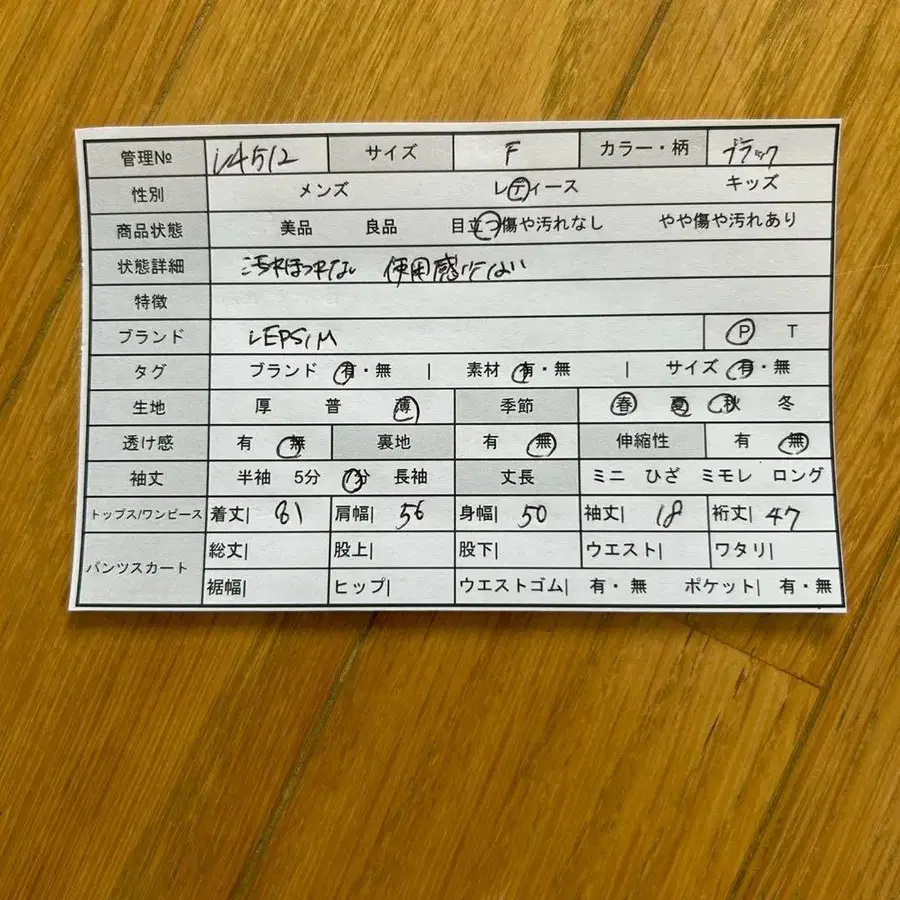 管理№ i4512 サイズ F カラー・柄 ブラック
性別 メンズ レディース キッズ
商品状態 美品 良品 目立つ傷や汚れなし やや傷や汚れあり
状態詳細 汚れほつれない 使用感少ない
特徴
ブランド LEPSIM P T
タグ ブランド 有・無 | 素材 有・無 | サイズ 有・無
生地 厚 普 薄 季節 春 夏 秋 冬
透け感 有 無 裏地 有 無 伸縮性 有 無
袖丈 半袖 5分 7分 長袖 丈長 ミニ ひざ ミモレ ロング
トップス/ワンピース 着丈| 81 肩幅| 56 身幅| 50 袖丈| 18 裄丈| 47
パンツスカート 総丈| 股上| 股下| ウエスト| ワタリ|
裾幅| ヒップ| ウエストゴム| 有・無 ポケット| 有・無